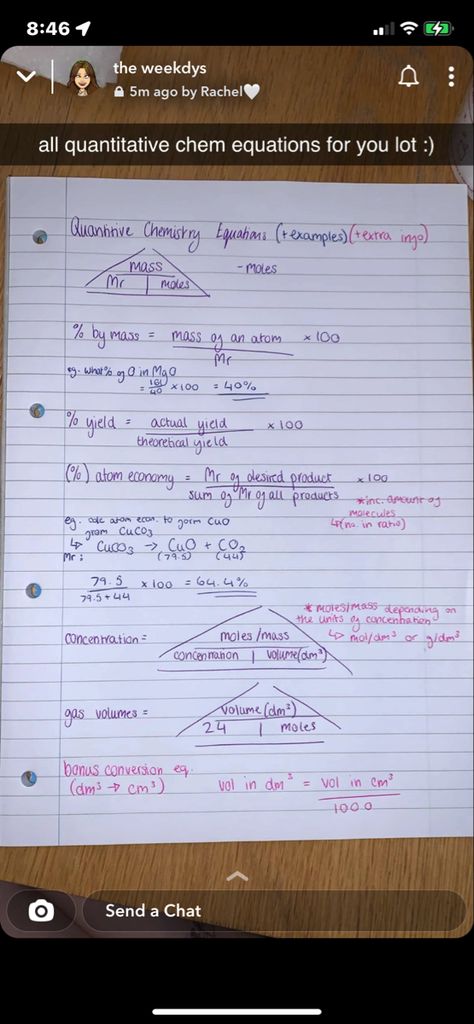 8:46
the weekdys
5m ago by Rachel🤍
all quantitative chem equations for you lot :)
Quantitive Chemistry Equations (+examples) (+extra info)
mass
Mr | moles
- moles
% by mass = mass of an atom x 100
Mr
eg. what % of O in MgO
= 16/40 x 100 = 40%
% yield = actual yield x 100
theoretical yield
(%) atom economy = Mr of desired product x 100
sum of Mr of all products
*inc. amount of
molecules
↳(no. in ratio)
eg. calc atom econ. to form CuO
from CuCO3
↳ CuCO3 → CuO + CO2
Mr: (79.5) (44)
79.5 x 100 = 64.4%
79.5+44
* moles/mass depending on
the units of concentration
↳ mol/dm³ or g/dm³
concentration = moles/mass
concentration | volume(dm³)
gas volumes = volume (dm³)
24 | moles
bonus conversion eq.
(dm³ → cm³) vol in dm³ = vol in cm³
1000
Send a Chat